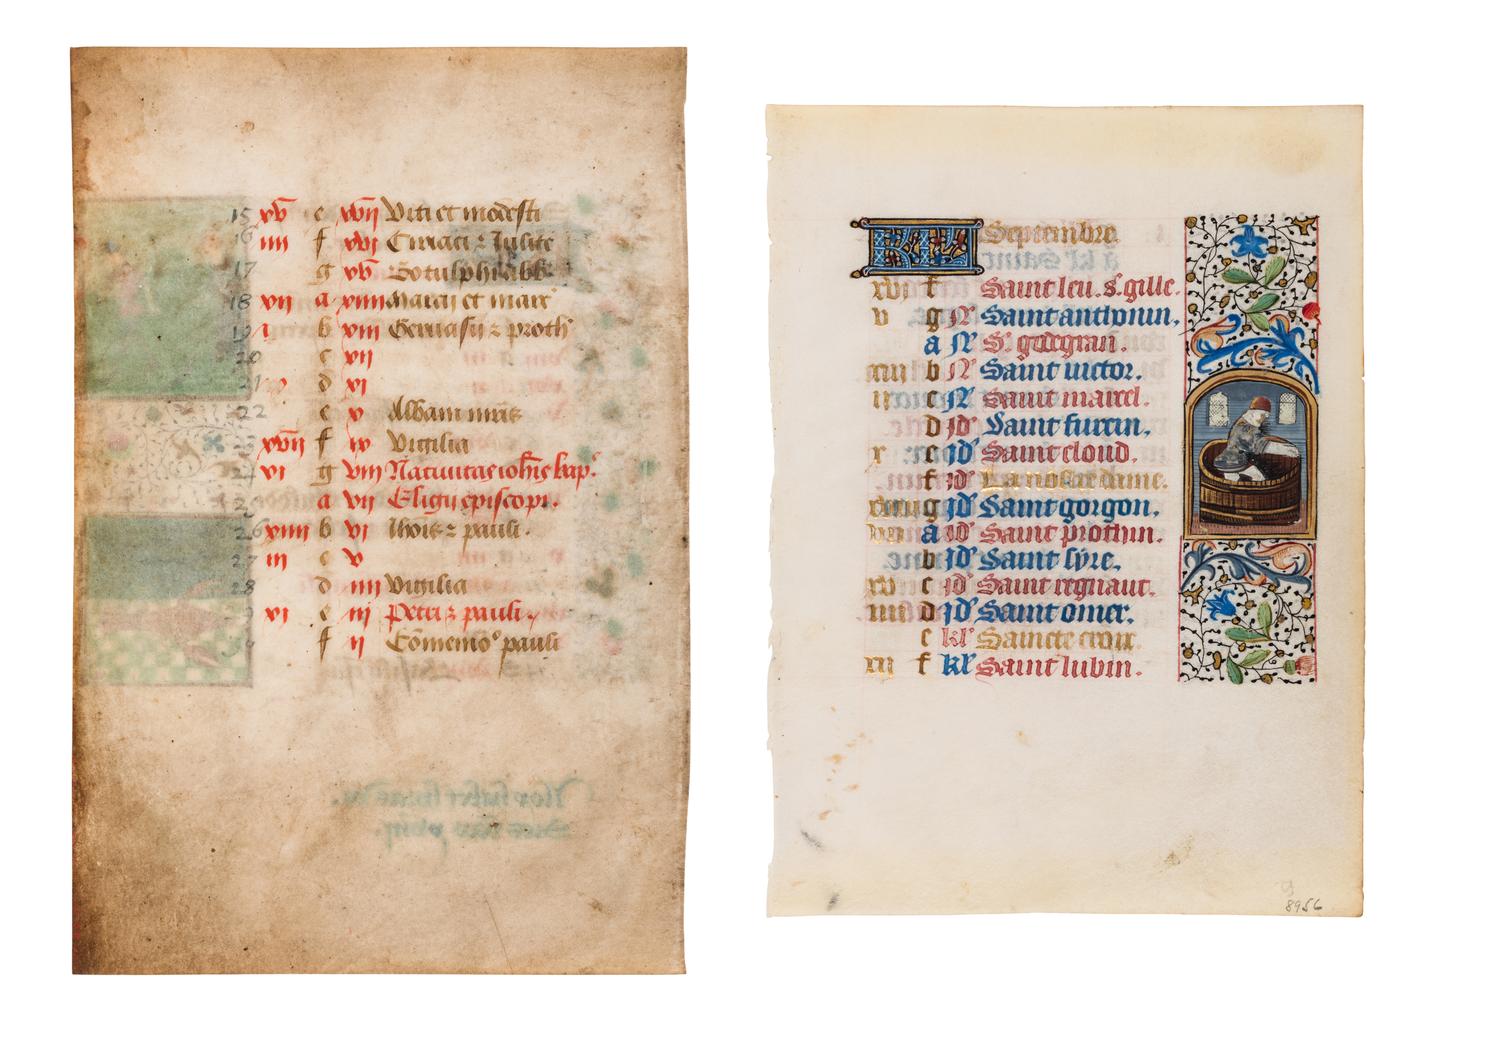 15 xv e xvii Viti et modesti
16 iiii f xvi Ciriaci z Julite
17 g xv
18 vii a xiiii Marci et marc
19 i b xiii Gervasii z proth
20 c xii
21 d xi
22 e x Albani mris
23 xvii f ix Vigilia
vi g viii Nativitas iohis bap.
a vii Eligii episcopi.
26 xiiii b vi Iohis z pauli.
27 iii c v
28 d iiii Vigilia
xi e iii Petri z pauli
f ii Comemo pauli
KL Septembre
xvi f Saint leu. s. gille.
v g N Saint anthonin,
a N S.
xiii b N Saint victor.
ii c N Saint marcel.
d id Saint furcin,
x e id Saint cloud.
f id La nostre dame.
xviii g id Saint gorgon,
vii a id Saint prothin.
b id Saint syre,
xv c id Saint regnaut.
iiii d id Saint omer,
e kl Saincte croix.
xii f kl Saint lubin.
9
8956